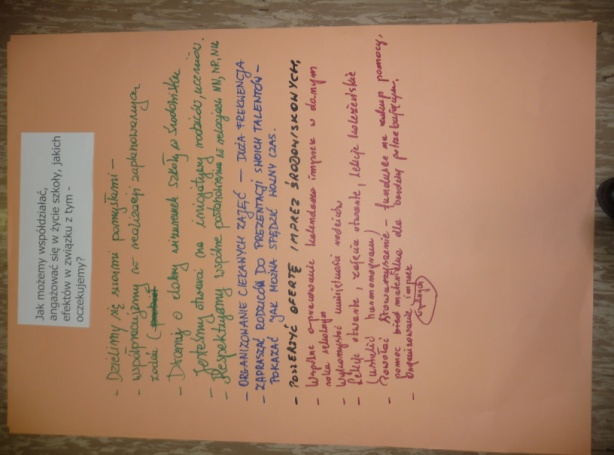 Jak możemy współdziałać,
angażować się w życie szkoły, jakich
efektów w związku z tym -
oczekujemy?
- Dzielimy się swoimi pomysłami -
- współpracujemy w realizacji zaplanowanych
zadań (
- Dbamy o dobry wizerunek szkoły w środowisku
- Jesteśmy otwarci na inicjatywy rodziców, uczniów.
- Respektujemy wspólne postanowienia w relacjach NU, NR, NN
- ORGANIZOWANIE CIEKAWYCH ZAJĘĆ - DUŻA FREKWENCJA
- ZAPRASZAĆ RODZICÓW DO PREZENTACJI SWOICH TALENTÓW -
POKAZAĆ JAK MOŻNA SPĘDZIĆ WOLNY CZAS.
- POSZERZYĆ OFERTĘ IMPREZ ŚRODOWISKOWYCH,
- Wspólne opracowanie kalendarza imprez w danym
roku szkolnym
- Wykorzystać umiejętności rodziców
- Lekcje otwarte, zajęcia otwarte, lekcje koleżeńskie
(ustalić harmonogram)
- Powołać Stowarzyszenie - fundusze na zakup pomocy,
pomoc materialna dla bardziej potrzebujących.
- Organizowanie imprez